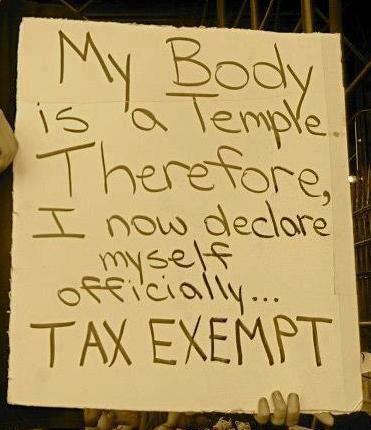 My Body
is a Temple.
Therefore,
I now declare
myself
officially...
TAX EXEMPT